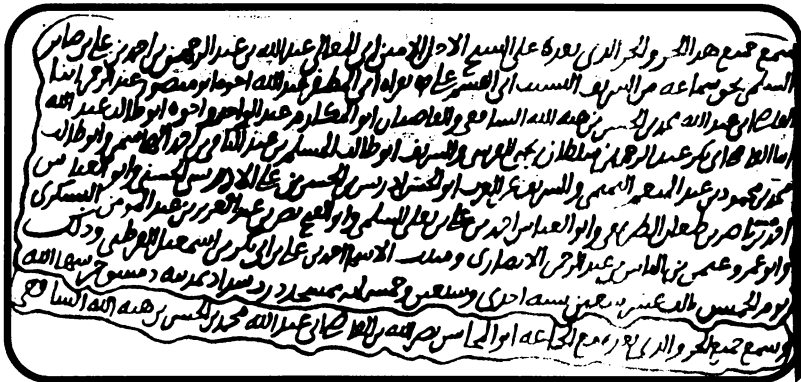 سمع جميع هذا الجزء والجزء الذي بعده على الشيخ الاجل الامين ابي المعالي عبد الله بن عبد الرحمن بن احمد بن علي بن صابر
السلمي بحق سماعه من الشريف النسيب ابي القسم علي بقراه ابي المظفر عبد الله اخوه ابو منصور عبد الرحمن ابنا
القاضي ابي عبد الله محمد بن الحسن بن هبه الله الشافعي والقاضيان ابو المكارم عبد الواحد واخوه ابو طالب عبد الله
ابنا القاضي ابي بكر عبد الرحمن بن سلطان بن يحيى القرشي والشريف ابو طالب المسلم بن عبد الباقي بن احمد الهاشمي وابو طالب
محمد بن محمود بن عبد المنعم التميمي والشريف ابو الحسن ادريس بن الحسن بن علي الادريسي الحسني وابو العباس
ناصر بن طعان الطريفي وابو العباس احمد بن علي بن يعلى السلمي وابو الفتح نصر بن عبد العزيز بن عبد المومن السكري
وابو عمرو عثمن بن الياس بن عبد الرحمن الانصاري ومثبت الاسما احمد بن علي بن ابي بكر بن اسمعيل القرطبي وذلك
يوم الخميس ثالث عشر سنه احدى وسبعين وخمس مايه بمسجد بمدينه دمشق حرسها الله
وسمع جميع الجزء والذي بعده مع الجماعه ابو المحاسن نصر الله بن القاضي ابي عبد الله محمد بن الحسن بن هبه الله الشافعي